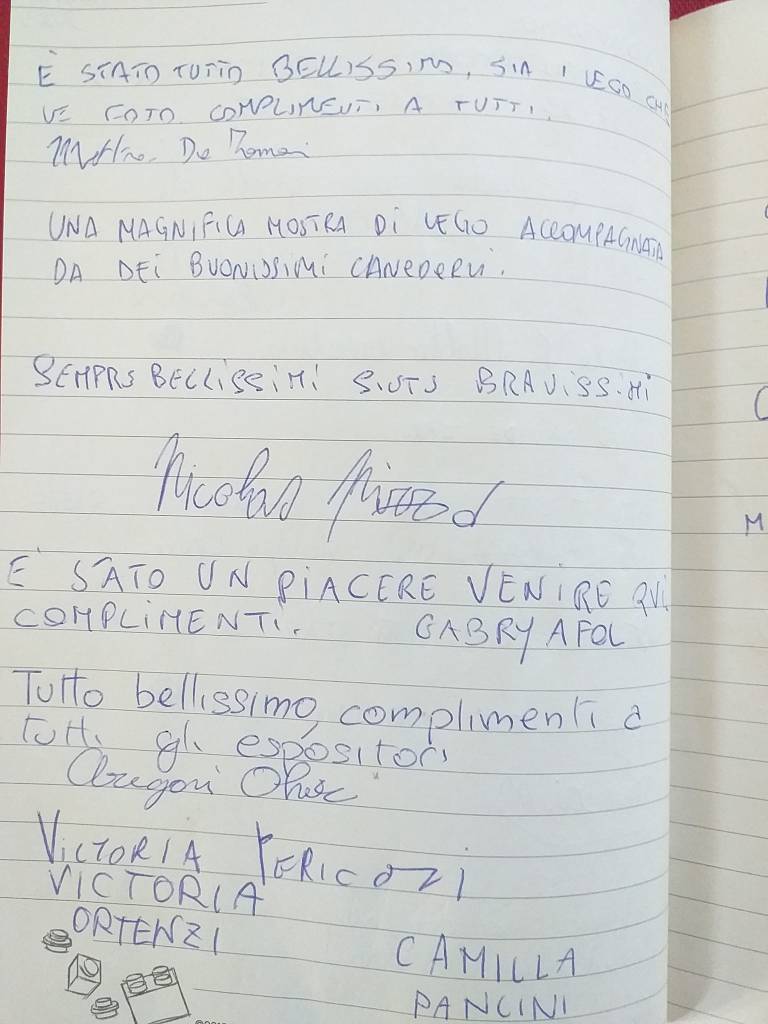 È STATO TUTTO BELLISSIMO, SIA I LEGO CHE
LE FOTO COMPLIMENTI A TUTTI.
De
UNA MAGNIFICA MOSTRA DI LEGO ACCOMPAGNATA
DA DEI BUONISSIMI CANEDERLI.
SEMPRE BELLISSIMI SIETE BRAVISSIMI
Nicolas
E' STATO UN PIACERE VENIRE QUI
COMPLIMENTI. GABRY AFOL
Tutto bellissimo, complimenti a
tutti gli espositori
VICTORIA PERICOZI
VICTORIA
ORTENZI
CAMILLA
PANCINI
M